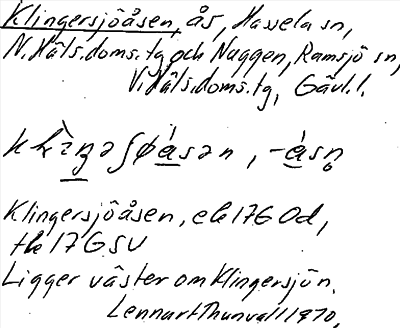 Klingersjöåsen, ås, Hassela sn,
N. Häls. doms. tg och Naggen, Ramsjö sn,
V. Häls. doms. tg, Gävl. l.
Klingersjöåsen, ek 17G Od,
tk 17 G SV
Ligger väster om Klingersjön.
Lennart Thunvall 1970.